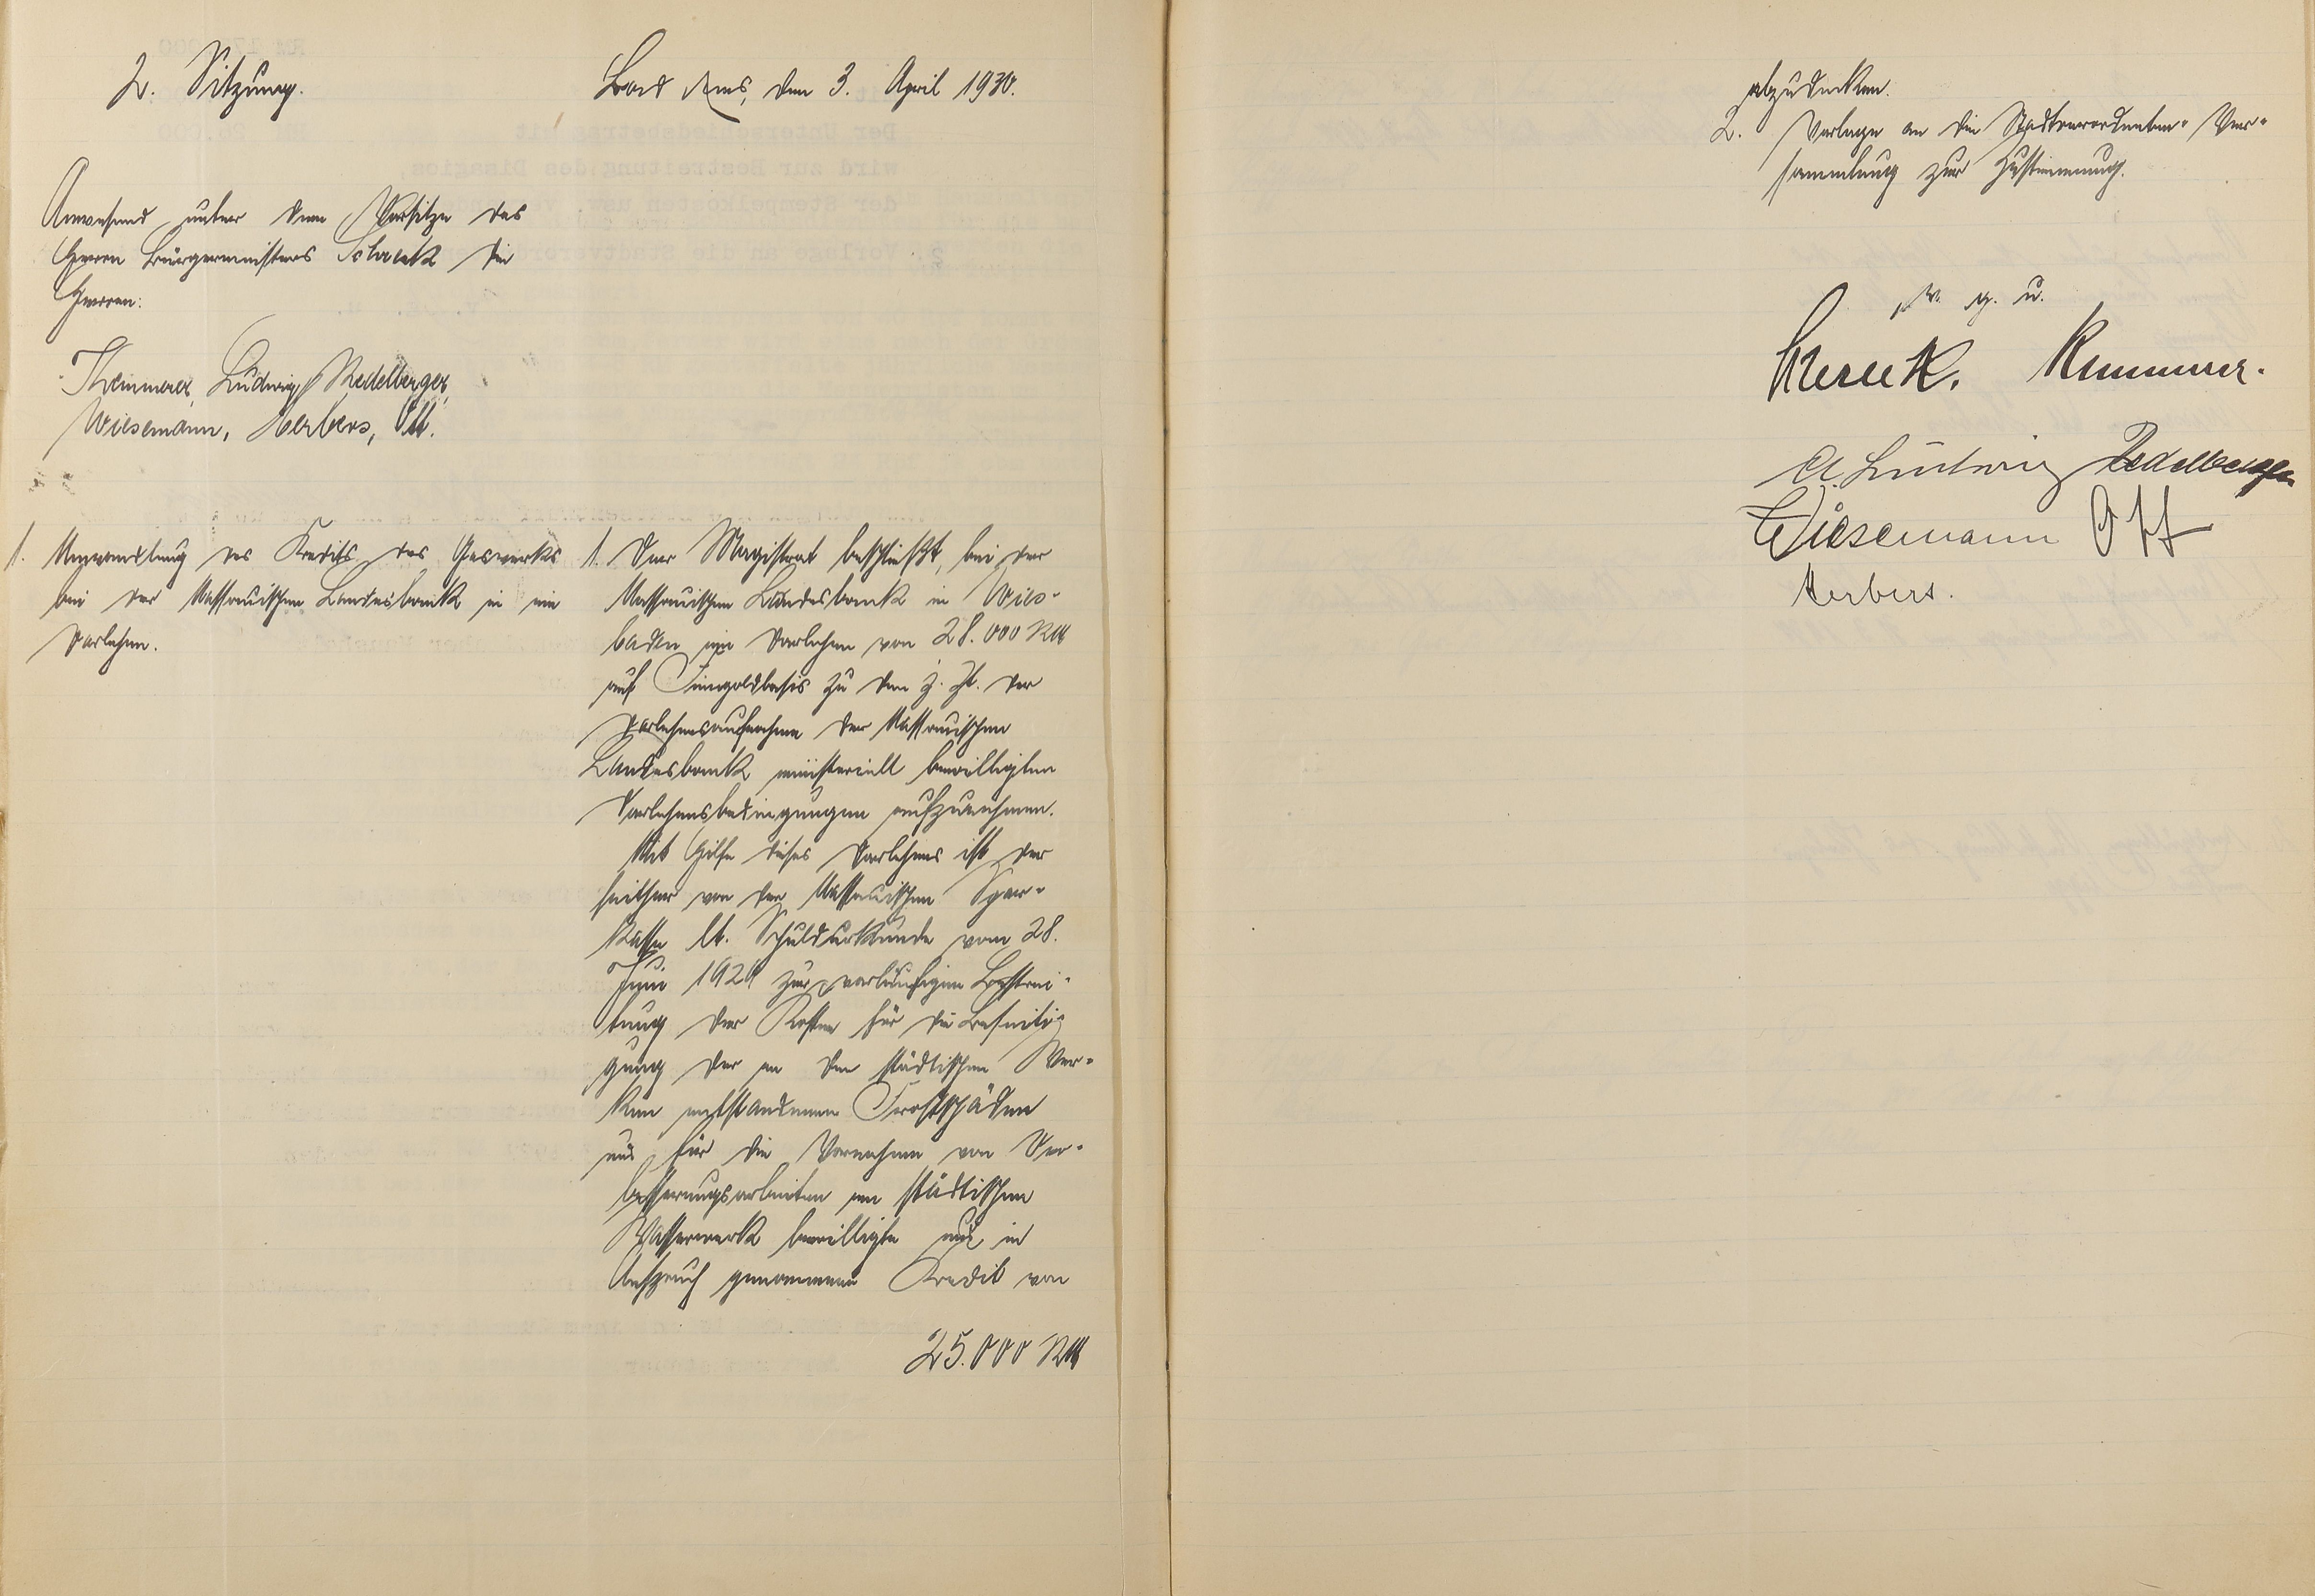 2. Sitzung.
Bad Ems, den 3. April 1930.
Anwesend unter dem Vorsitze des
Herrn Bürgermeisters Schreck die
Herren:
Ludwig, Redelberger,
Wiesemann, Herbers, Ott.
1. Umwandlung des Kredits des Gaswerks
bei der Nassauischen Landesbank in ein
Darlehen.
1. Der Magistrat beschließt, bei der
Nassauischen Landesbank in Wies-
baden ein Darlehen von 28.000 RM
auf Feingoldbasis zu den z. Zt. der
Darlehensaufnahme der Nassauischen
Landesbank ministeriell bewilligten
Darlehensbedingungen aufzunehmen.
Mit Hilfe dieses Darlehens ist der
seither von der Nassauischen Spar-
kasse lt. Schuldurkunde vom 28.
Juni 1929 zur vorläufigen Bestrei-
tung der Kosten für die Beseiti-
gung der an den städtischen Wer-
ken entstandenen Frostschäden
und für die Vornahme von Ver-
besserungsarbeiten am städtischen
Wasserwerk bewilligte und in
Anspruch genommene Kredit von
25.000 RM
abzudecken.
2. Vorlage an die Stadtverordneten-Ver-
sammlung zur Zustimmung.
v. g. u.
Schreck.
A. Ludwig Redelberger
Wiesemann Ott
Herbers.